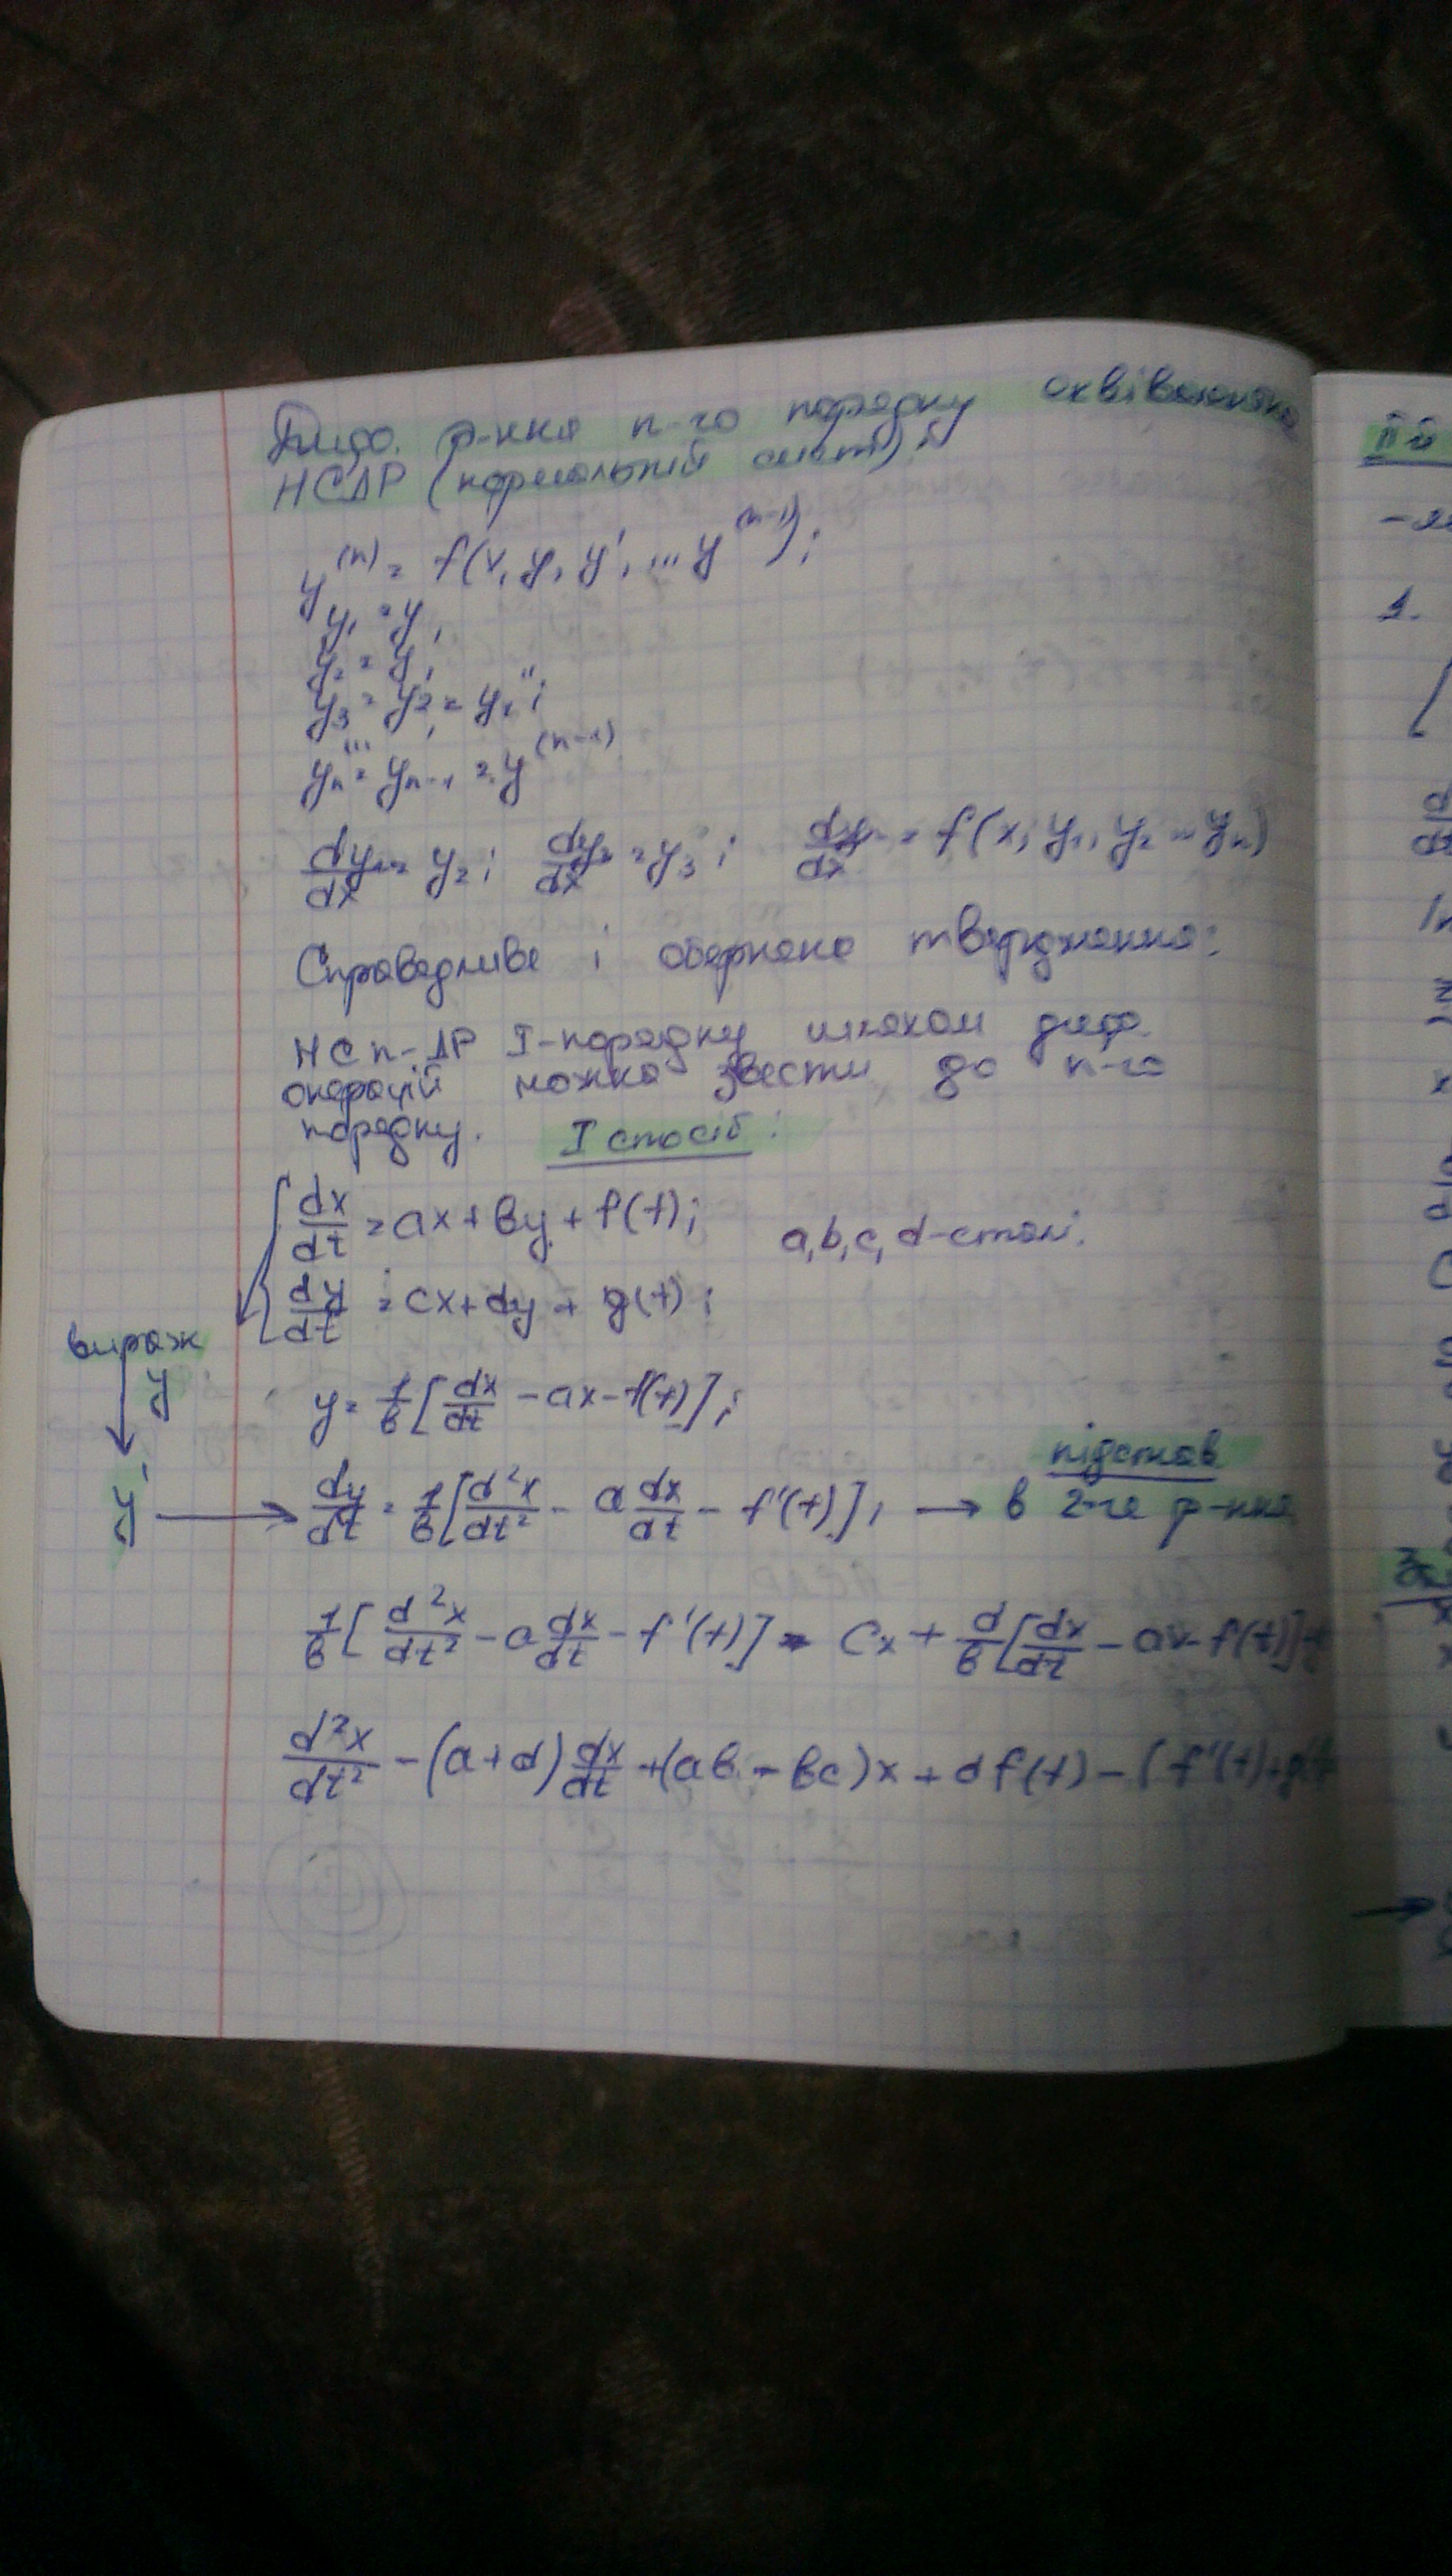 Диф. р-ння n-го порядку еквівалентне
НСДР (нормальній сист);
y^(n) = f(x, y, y', ... y^(n-1));
y₁ = y,
y₂ = y₁'
y₃ = y₂' = y₁'';
...
yₙ = yₙ₋₁' = y^(n-1)
dy₁/dx = y₂; dy₂/dx = y₃; dyₙ/dx = f(x, y₁, y₂ ... yₙ)
Справедливе і обернене твердження:
НС n-ДР I-порядку шляхом диф.
операцій можна звести до n-го
порядку. I спосіб:
dx/dt = ax + by + f(t); a, b, c, d - сталі.
dy/dt = cx + dy + g(t);
вираж
y
y = 1/b [dx/dt - ax - f(t)];
y' → dy/dt = 1/b [d²x/dt² - a dx/dt - f'(t)]; → підстав
в 2-ге р-ння
1/b [d²x/dt² - a dx/dt - f'(t)] = cx + d/b [dx/dt - ax - f(t)] +
d²x/dt² - (a+d) dx/dt + (ab - bc)x + df(t) - (f'(t) +
-2
1.